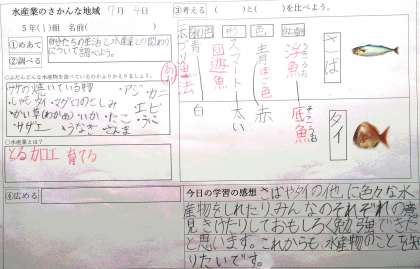 水産業のさかんな地域 7月4日
5年(1)組 名前( )
①めあて
自分たちの生活と水産業の関わりについて調べよう。
②調べる
○ふだんどんな水産物を食べているのかふりかえりましょう。
サケの焼いている物 ・アジ・カニ
しゃぶ ダイ・マグロのさしみ エビ
かい草(わかめ)・いか・たこ ・うに
・サザエ ・うなぎ・さんま
○水産業とは?
とる 加工 育てる
③考える( )と( )を比べよう。
さば
浮魚
青
回遊魚
スマート
青
タイ
底魚
赤
太い
白
④広める
今日の学習の感想
さばやタイの他にも色々な水産物をしれたり、みんなのそれぞれの意見きけたりしておもしろく勉強できたと思います。これからも、水産物のことを知りたいです。